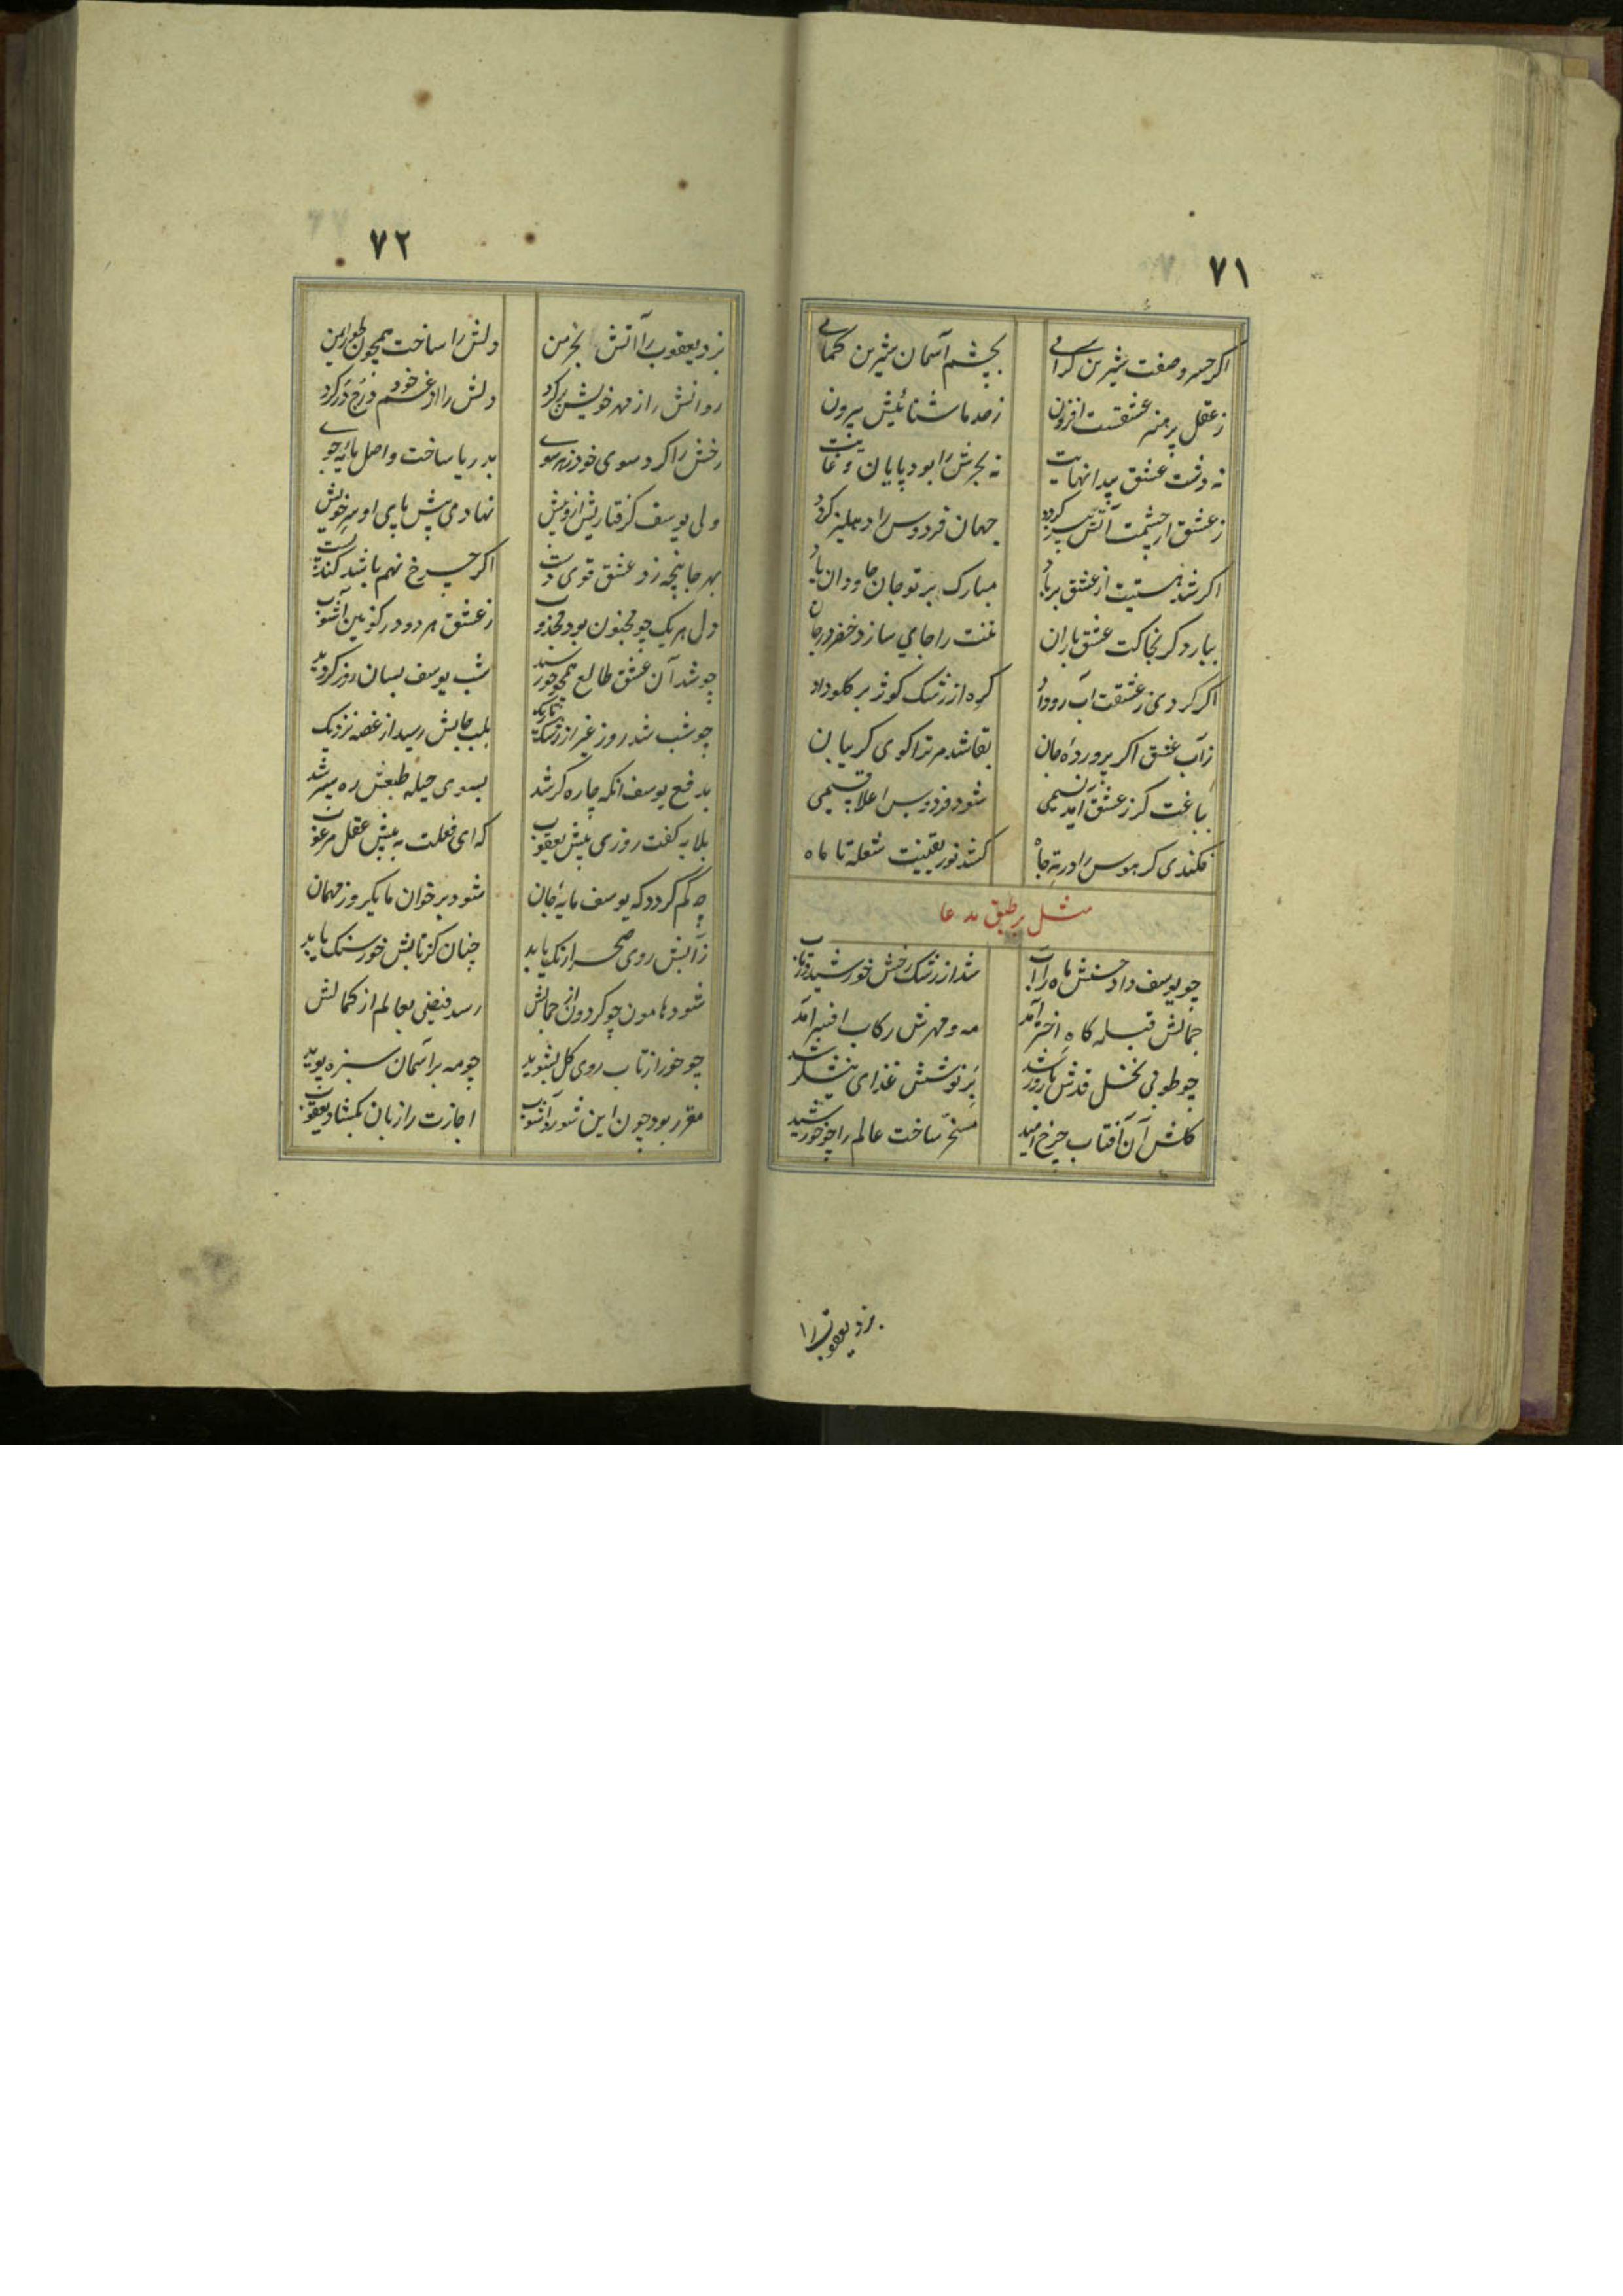 ۷۱
اکر خسرو صفت شیرین کرائی بچشم آسمان شیرین نمائی
ز عقل پر هنر عشقست افزون ز حد ماشنائیش بیرون
نه دشت عشق پیدا نهایت نه بحرش را بود پایان و غایت
ز عشق ار چشمت آتش بیز کردد جهان فردوس را دهلیز کردد
اکر شد هستیت از عشق بر باد مبارک بر تو جان جاودان باد
ببارد کر بخاکت عشق باران تنت را جای سازد خضر در جان
اکر کردی ز عشقت آب رو داد کره از رشک کوثر بر کلو داد
ز آب عشق اکر پرورده جان بقا شد مر ترا کوی کریبان
بباغت کر ز عشق آمد نسیمی شود فردوس اعلا قسیمی
فکندی کر هوس را در ته چاه کشد نور یقینت شعله تا ماه
مثل بر طبق مدعا
چو یوسف داد حسنش ماه را آب شد از رشک رخش خورشید در تاب
جمالش قبله کاه اختر آمد مه و مهرش رکاب افسر آمد
چو طوبی نخل قدش بارور شد بر نوشش غذای نیشکر شد
کلش آن آفتاب چرخ امید مسخر ساخت عالم را چو خورشید
بزد یعقوب را
۷۲
بزد یعقوب را آتش بخرمن دلش را ساخت همچون طور ایمن
روانش را ز مهر خویش پر کرد دلش را از غم خود درج در کرد
رخش را کرد سوی خود ز هر سوی بدریا ساخت واصل مایه جوی
ولی یوسف کرفتاریش از و بیش نهادی پیش پای او سر خویش
بهر جا پنجه زد عشق قوی دست اکر چرخ نهم باشد کند پست
دل هر یک چو مجنون بود مجذوب ز عشق هر دو در کونین آشوب
چو شد آن عشق طالع همچو خورشید شب یوسف بسان روز کردید
چو شب شد روز غیر از رشک تاریک بلب جایش رسید از غصه نزدیک
بدفع یوسف آنکه چاره کر شد بسوی حیله طبعش ره سپر شد
بلابه کفت روزی پیش یعقوب که ای فعلت به پیش عقل مرغوب
چه کم کردد که یوسف مایه جان شود بر خوان ما یکروز مهمان
ز آبش روی صحرا رنک یابد چنان کز تابش خور سنک یابد
شود هامون چو کردون از جمالش رسد فیضی بعالم از کمالش
چو خور از تاب روی کل بشوید چو مه بر آسمان سبزه پوید
مقرر بود چون این شور و آشوب اجازت را زبان بکشاد یعقوب